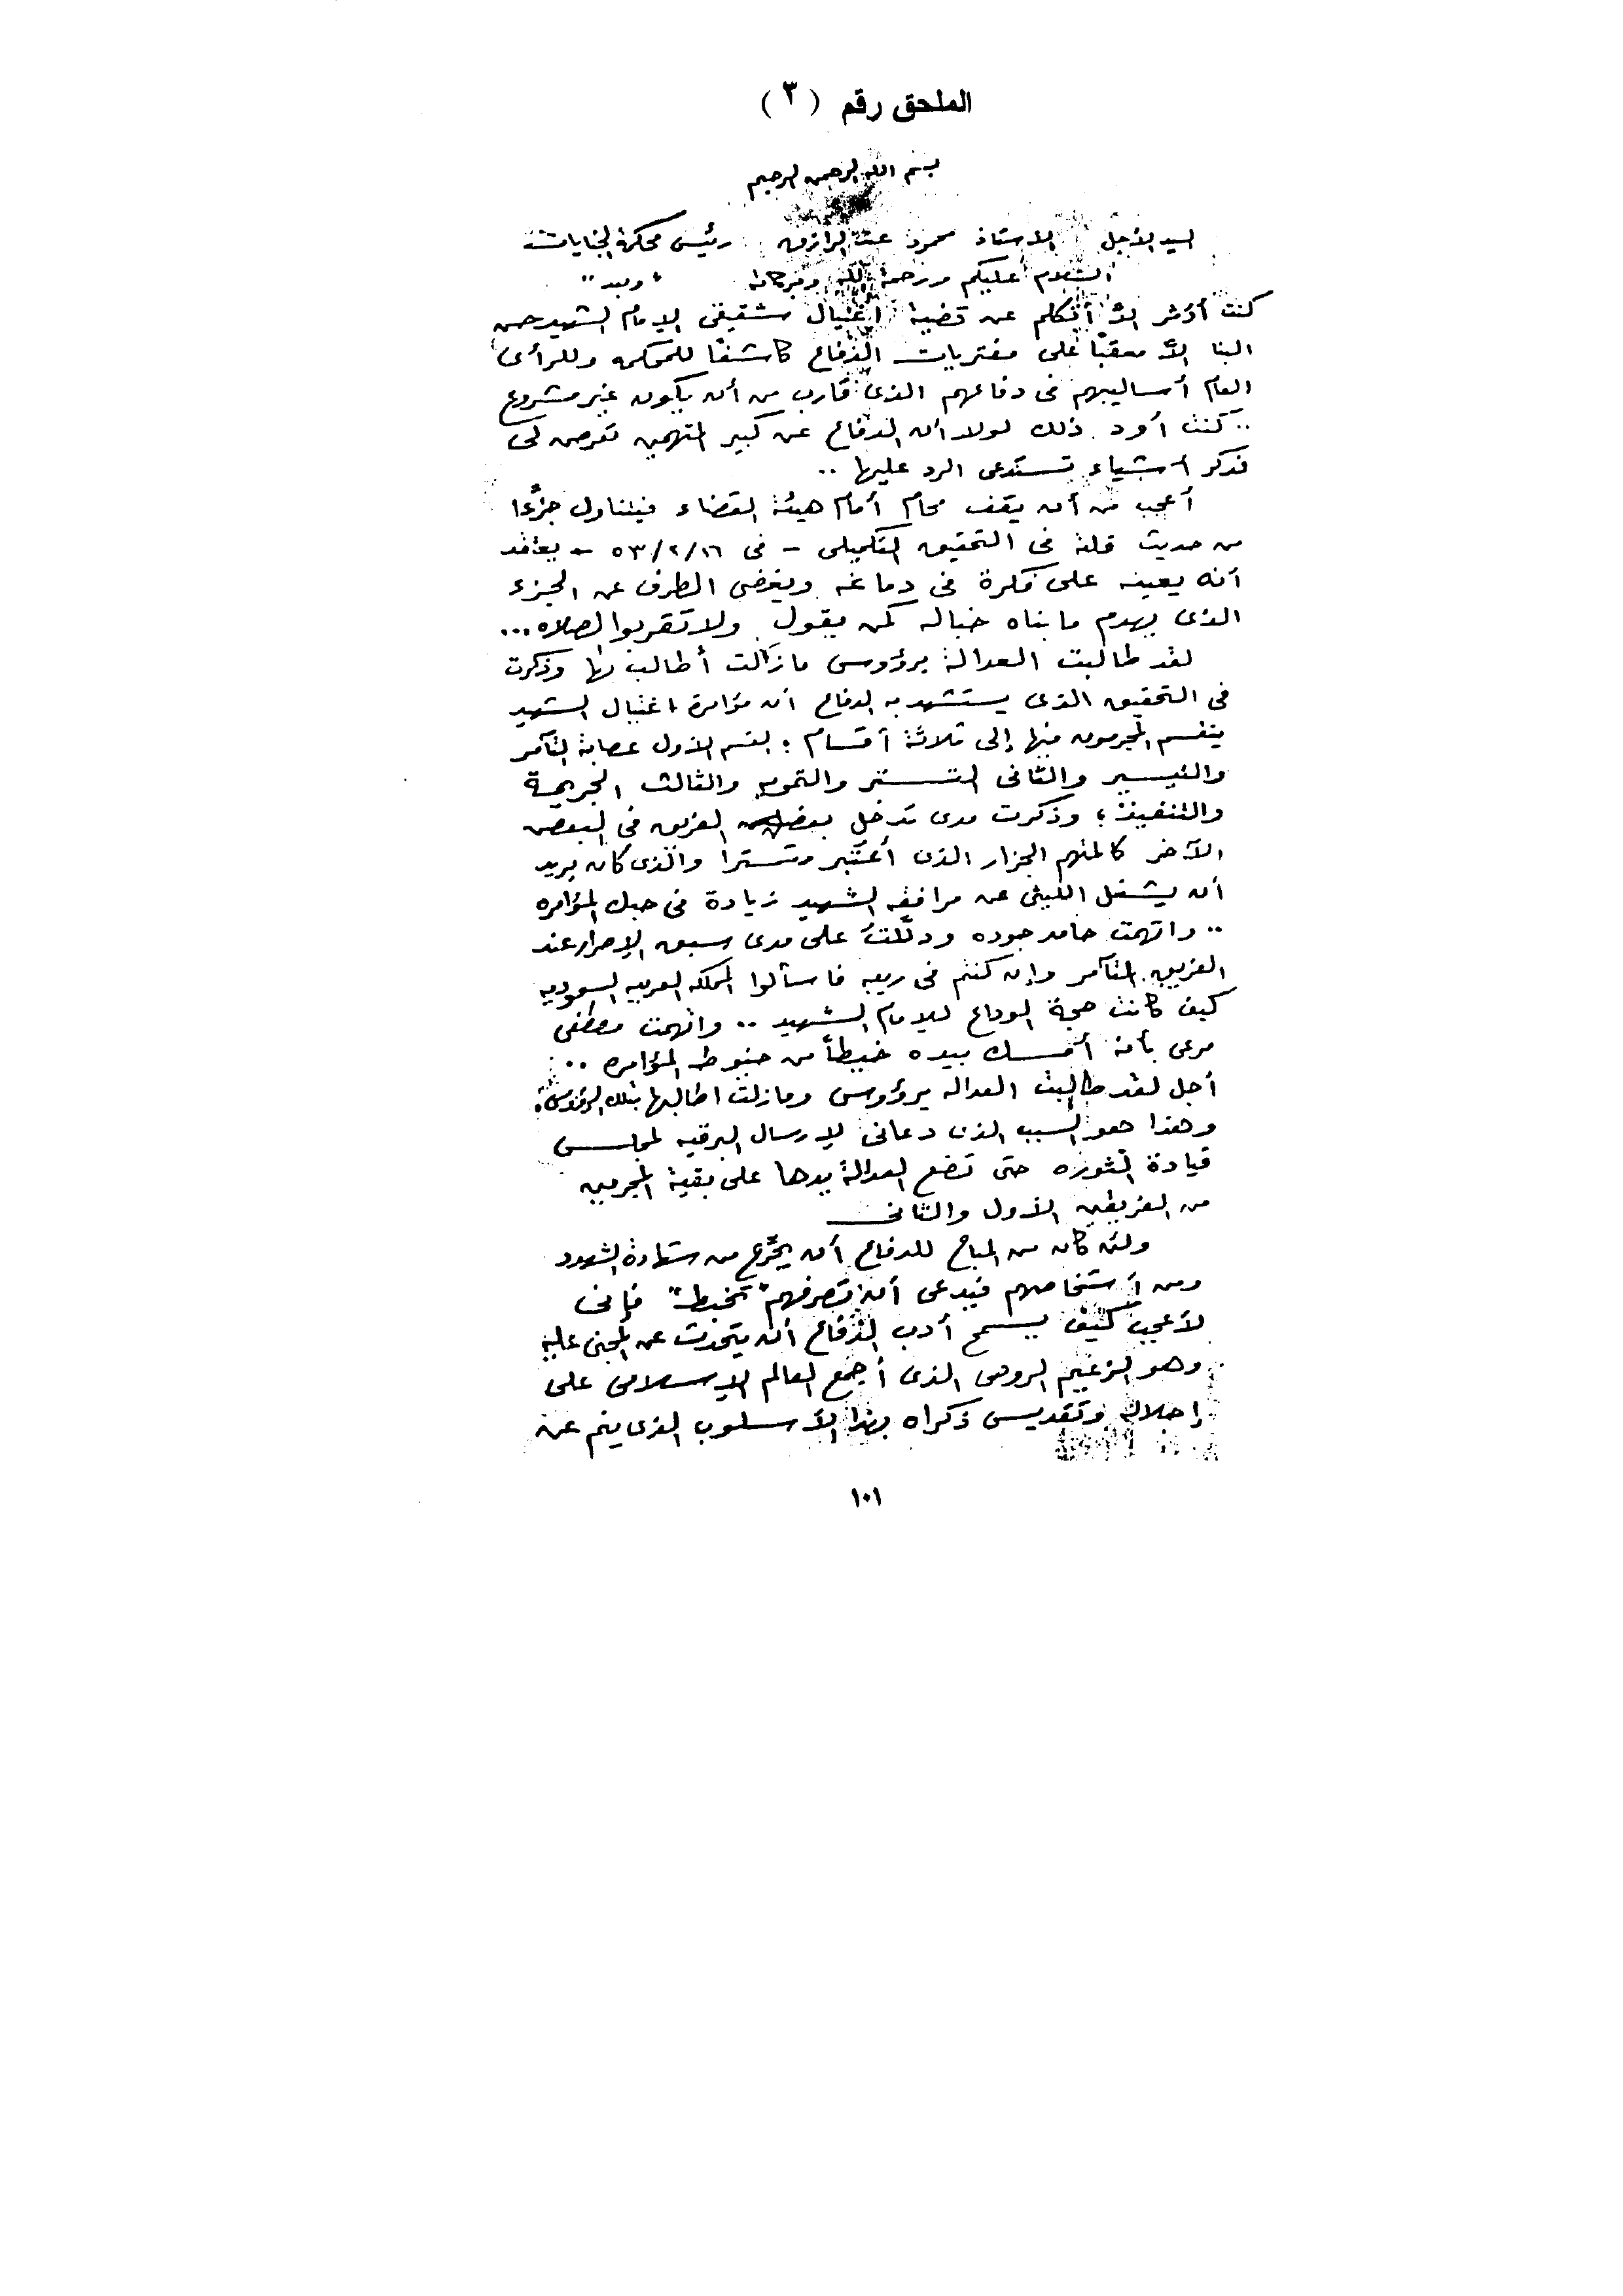 الملحق رقم ( ٣ )
بسم الله الرحمن الرحيم
السيد الأجل الاستاذ محمود عبد الرازق رئيس محكمة الجنايات
السلام عليكم ورحمة الله وبركاته " وبعد "
كنت أؤثر ألا أتكلم عن قضية اغتيال شقيقى الإمام الشهيد حسن
البنا إلا معقبًا على مفتريات الدفاع كاشفًا للمحكمه وللرأى
العام أساليبهم فى دفاعهم الذى قارب من أن يكون غير مشروع
.. كنت أود ذلك لولا أن الدفاع عن كبير المتهمين تعرض لى
فذكر أشياء تستدعى الرد عليها ..
أعجب من أن يقف محام أمام هيئة القضاء فيتناول جزءًا
من حديث قلته فى التحقيق التكميلى - فى ٥٣/٢/١٦ - يعتقد
أنه يعينه على فكرة فى دماغه ويغضى الطرف عن الجزء
الذى يهدم ما بناه خياله كمن يقول ولا تقربوا الصلاه ...
لقد طالبت العدالة برؤوس ما زالت أطالب بها وذكرت
فى التحقيق الذى يستشهد به الدفاع أن مؤامرة اغتيال الشهيد
ينقسم المجرمون فيها إلى ثلاثة أقسام : القسم الأول عصابة التآمر
والتيسير والثانى التستر والتمويه والثالث الجريمة
والتنفيذ ، وذكرت مدى تدخل بعض الفريق فى البعض
الآخر كالمتهم الجزار الذى أعتبر متسترا والذى كان يريد
أن يشغل الليثى عن مرافقه الشهيد زيادة فى حبك المؤامره
.. واتهمت حامد جوده ودللت على مدى سبق الإصرار عند
الفريق المتآمر وإن كنتم فى ريبه فاسألوا المملكه العربيه السعوديه
كيف كانت حجة الوداع للإمام الشهيد .. واتهمت مصطفى
مرعى بأنه أمسك بيده خيطاً من خيوط المؤامره ..
أجل لقد طالبت العداله برؤوس وما زلت اطالبها بتلك الرؤوس
وهذا هو السبب الذى دعانى لإرسال البرقيه لمجلس
قيادة الثوره حتى تضع العدالة يدها على بقية المجرمين
من الفريقين الأول والثانى
ولئن كان من المباح للدفاع أن يجرح من شهادة الشهود
ومن أشخاصهم فيدعى أن تصرفهم " تخبط " فإنى
لأعجب كيف يسمح أدب الدفاع أن يتحدث عن المجنى عليه
وهو الزعيم الروحى الذى أجمع العالم الإسلامى على
إجلاله وتقديس ذكراه بهذا الأسلوب الذى ينم عن
١٠١